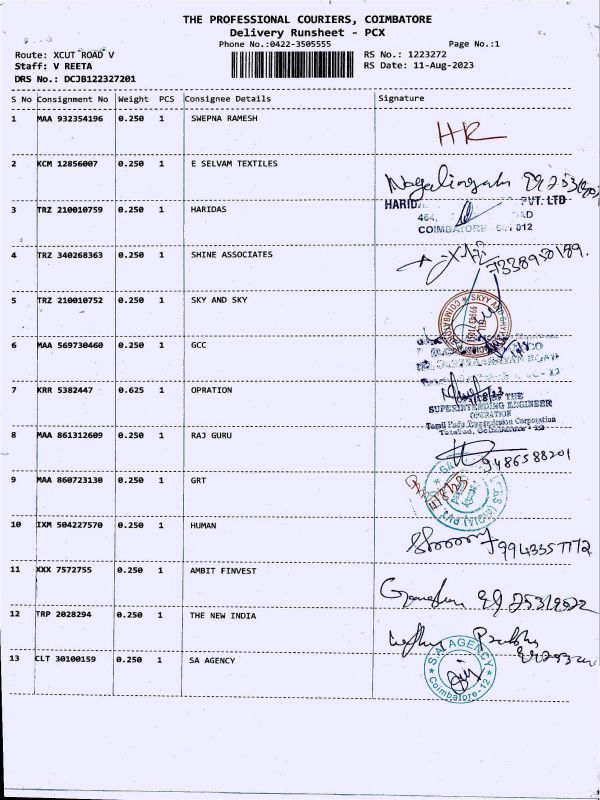 THE PROFESSIONAL COURIERS, COIMBATORE
Delivery Runsheet - PCX
Phone No.:0422-3505555 Page No.:1
Route: XCUT ROAD V RS No.: 1223272
Staff: V REETA RS Date: 11-Aug-2023
DRS No.: DCJB122327201
S No Consignment No Weight PCS Consignee Details Signature
1 MAA 932354196 0.250 1 SWEPNA RAMESH
HR
2 KCM 12856007 0.250 1 E SELVAM TEXTILES
Nagalingam
3 TRZ 210010759 0.250 1 HARIDAS
PVT. LTD
464,
COIMBATORE 012
4 TRZ 340268363 0.250 1 SHINE ASSOCIATES
7338950189.
5 TRZ 210010752 0.250 1 SKY AND SKY
6 MAA 569730460 0.250 1 GCC
7 KRR 5382447 0.625 1 OPRATION
OF THE
SUPERINTENDING ENGINEER
OPERATION
Tamil Nadu Transmission Corporation
Tatabad, Coimbatore - 12
8 MAA 861312609 0.250 1 RAJ GURU
9486588201
9 MAA 860723130 0.250 1 GRT
10 IXM 504227570 0.250 1 HUMAN
9943357772
11 XXX 7572755 0.250 1 AMBIT FINVEST
12 TRP 2028294 0.250 1 THE NEW INDIA
13 CLT 30100159 0.250 1 SA AGENCY
S.A AGENCY
Coimbatore-12